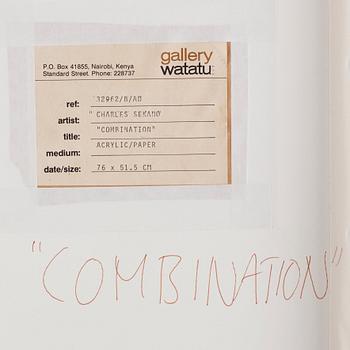 gallery
watatu
P.O. Box 41855, Nairobi, Kenya
Standard Street. Phone: 228737
ref: 32962/B/AD
artist: " CHARLES SEKANO
title: "COMBINATION"
medium: ACRYLIC/PAPER
date/size: 76 x 51.5 CM
"COMBINATION"